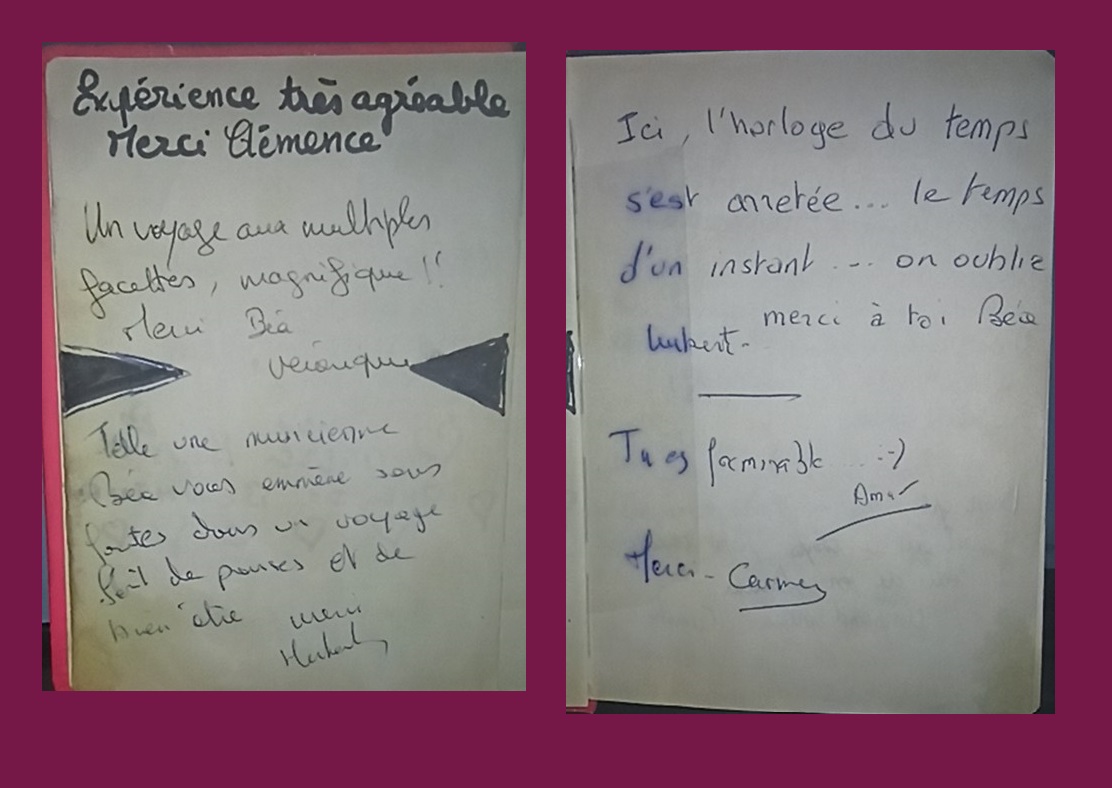 Expérience très agréable
Merci Clémence
Un voyage aux multiples
facettes, magnifique !!
Merci Béa
Véronique
Telle une musicienne
Béa vous emmène sans
fautes dans un voyage
fait de pauses et de
bien être merci
Ici, l'horloge du temps
s'est arretée... le temps
d'un instant ... on oublie
merci à toi Béa
Hubert-
Tu es formidable ... :-)
Merci - Carmen